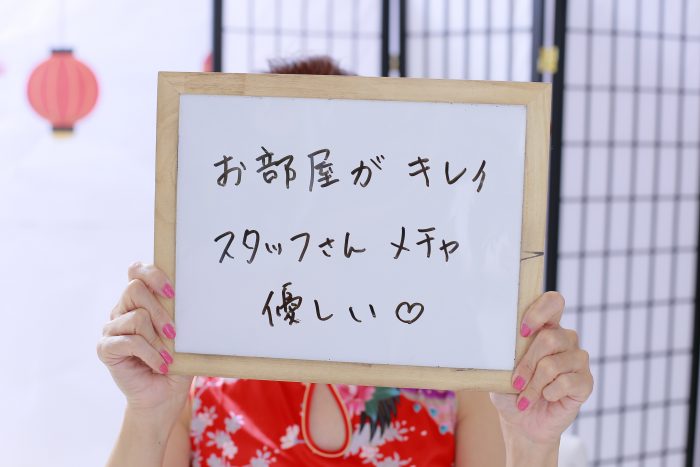 お部屋がキレイ
スタッフさん メチャ
優しい♡